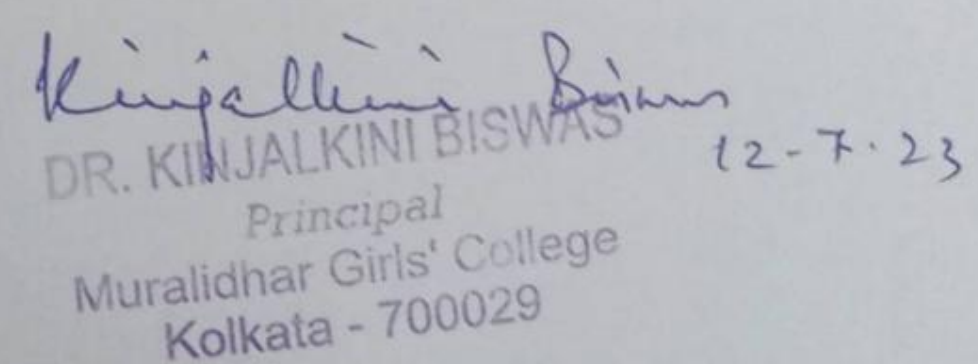 Kinjalkini Biswas
12-7.23
DR. KINJALKINI BISWAS
Principal
Muralidhar Girls' College
Kolkata - 700029